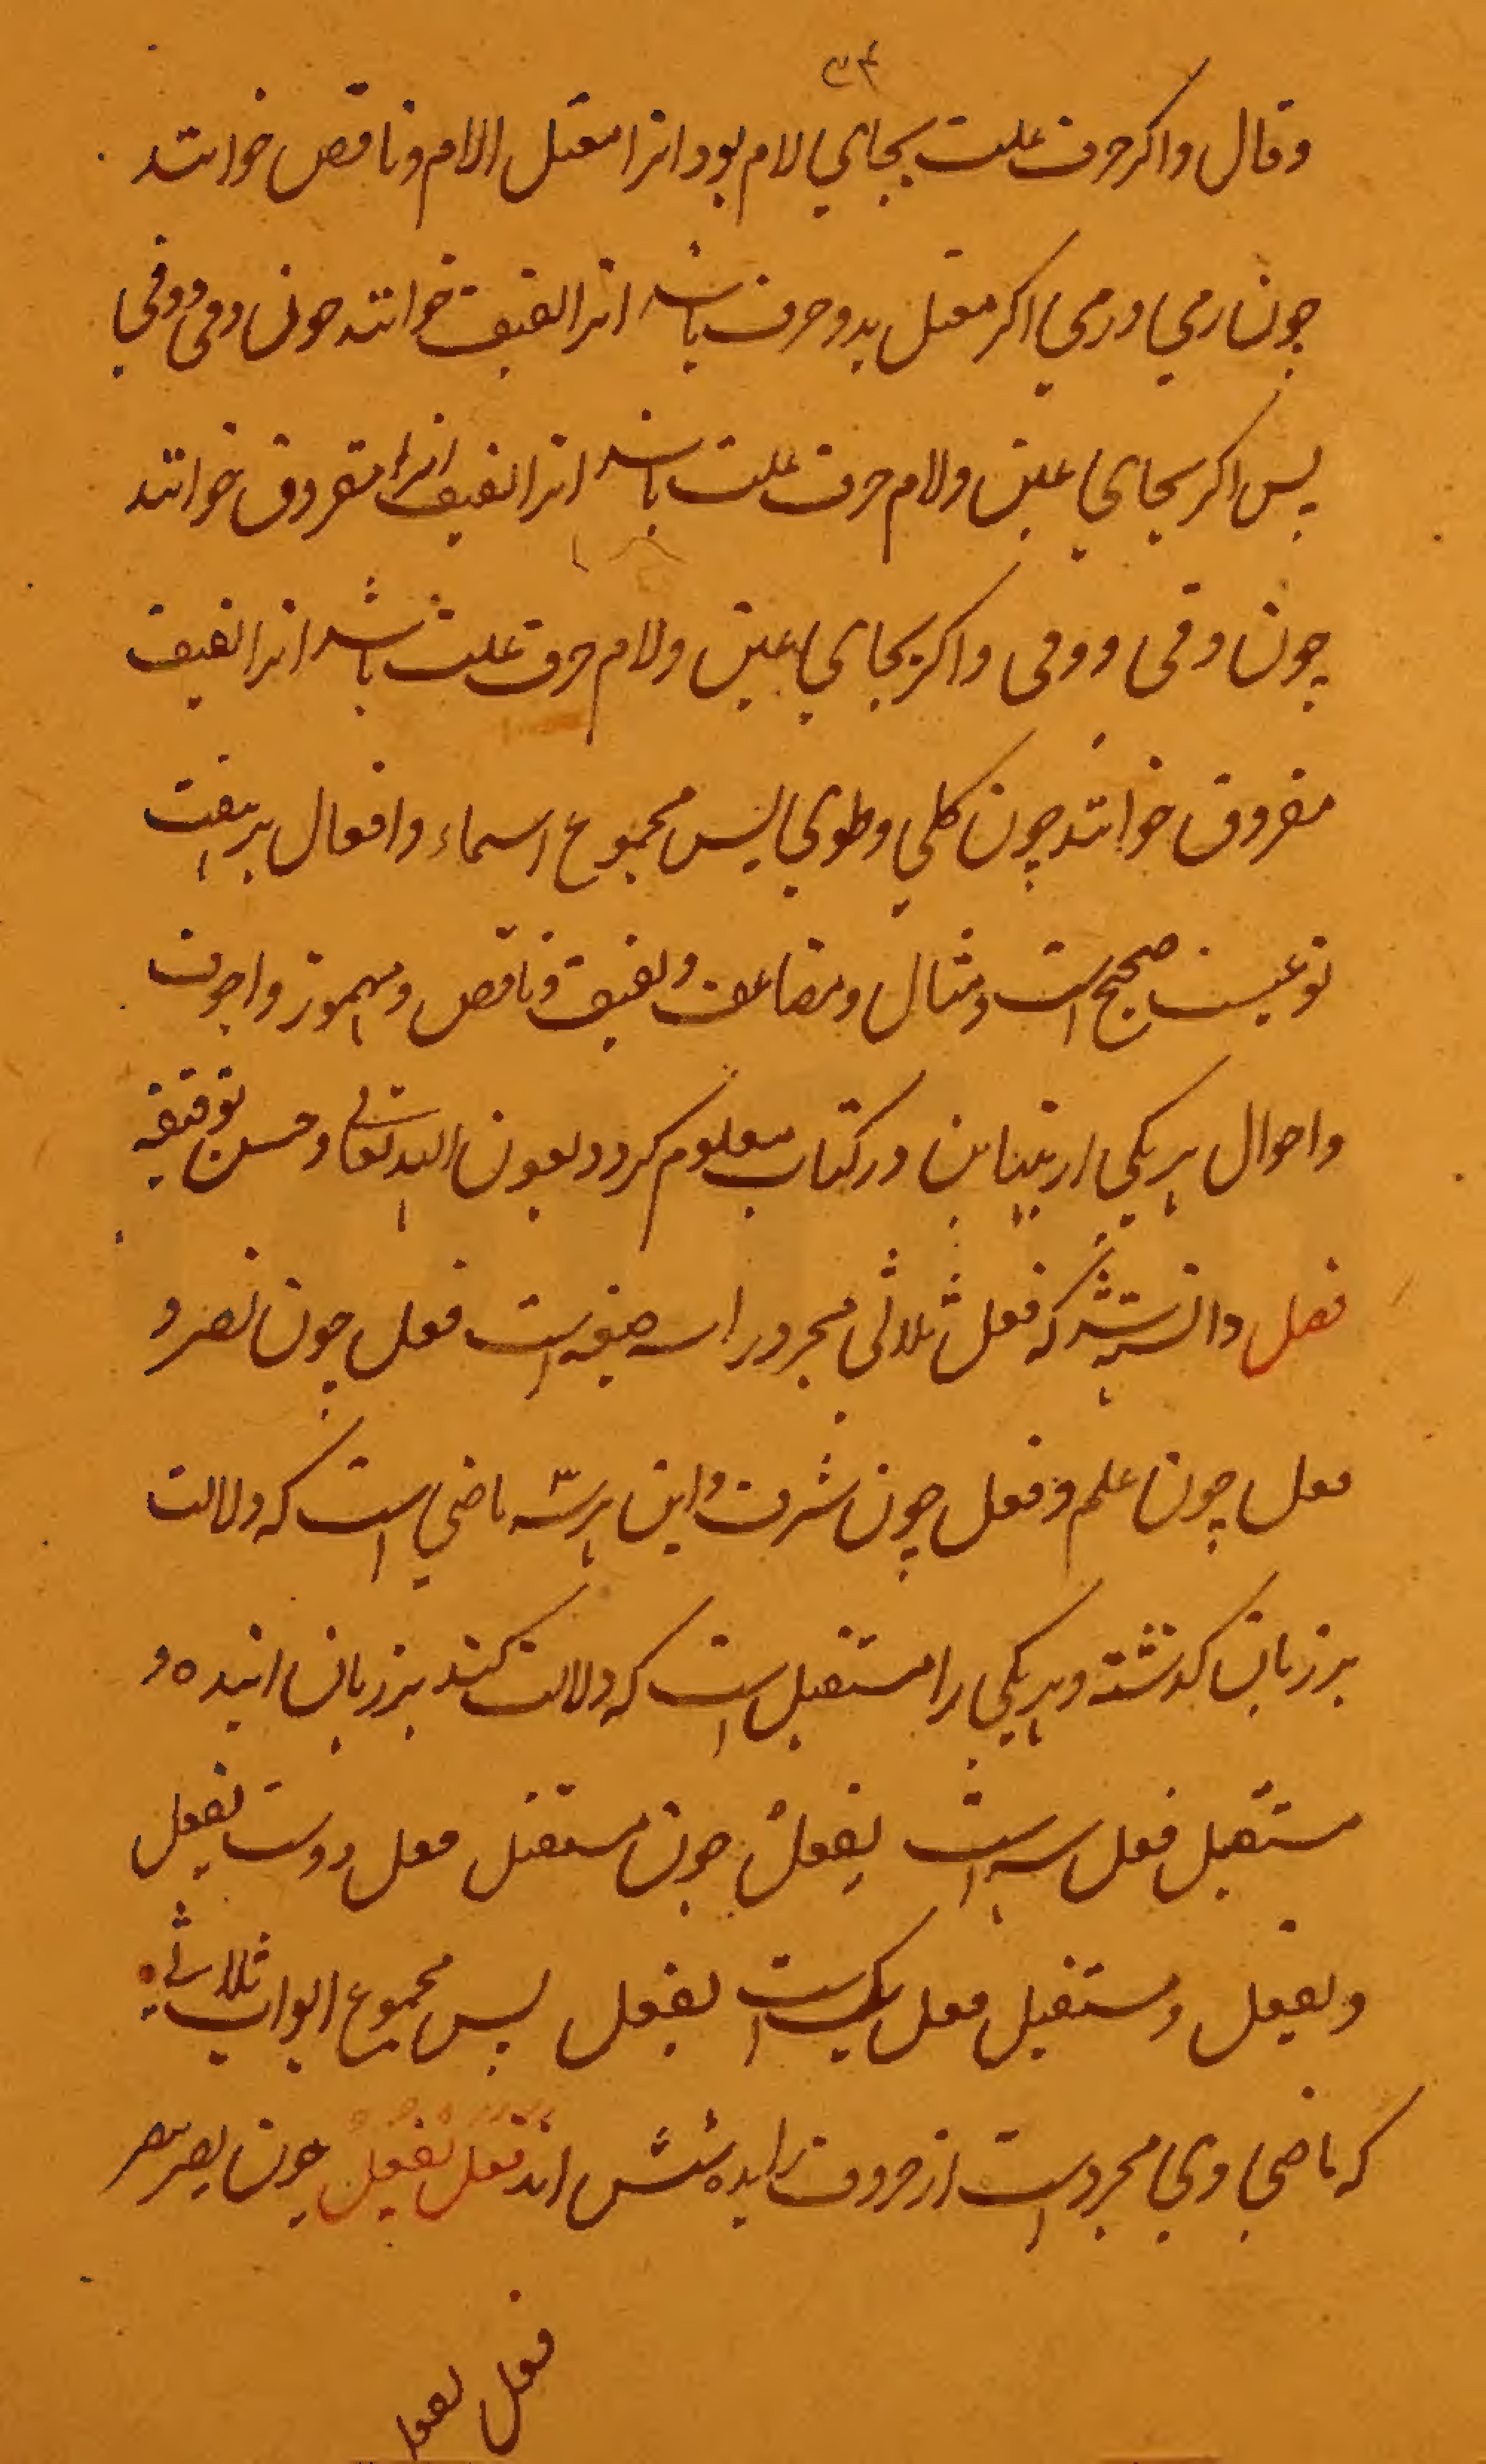 وقال واکر حرف علت بجای لام بود انرا معتل الام وناقص خوانند
چون رمی ورمی اکر معتل بدو حرف باشد انرا لفیف خوانند چون وقی ووقی
پس اکر بجای عین ولام حرف علت باشد انرا لفیف انرا مقروق خوانند
چون وقی ووقی واکر بجای عین ولام حرف علت باشد انرا لفیف
مفروق خوانند چون کلی وطوی پس مجموع اسماء وافعال بر هفت
نوعیست صحیح است ومثال ومضاعف ولفیف وناقص ومهموز واجوف
واحوال هر یکی از بنیاین در کتاب معلوم کردد بعون الله تعالی وحسن توفیقه
فصل دانسته شد که فعل ثلاثی مجرور را سه صیغه است فعل چون نصر و
فعل چون علم وفعل چون شرف واین هر سه ماضی است که دلالت
بر زمان کذشته وهر یکی را مستقبل است که دلالت کند بر زمان اینده و
مستقبل فعل سه است یفعل چون مستقبل فعل دوست یفعل
ویفعل ومستقبل فعل یک است یفعل پس مجموع ابواب ثلاثی
که ماضی وی مجرد است از حروف زایده شش اند فعل یفعل چون نصر ینصر
فعل یفعل